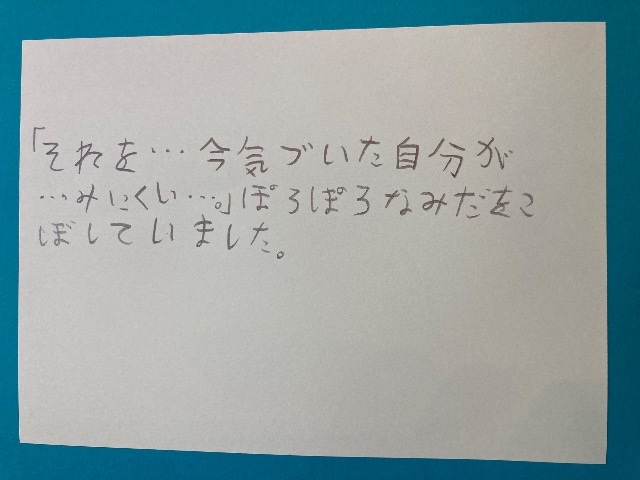 「それを…今気づいた自分が
…みにくい…。」ぽろぽろなみだをこ
ぼしていました。